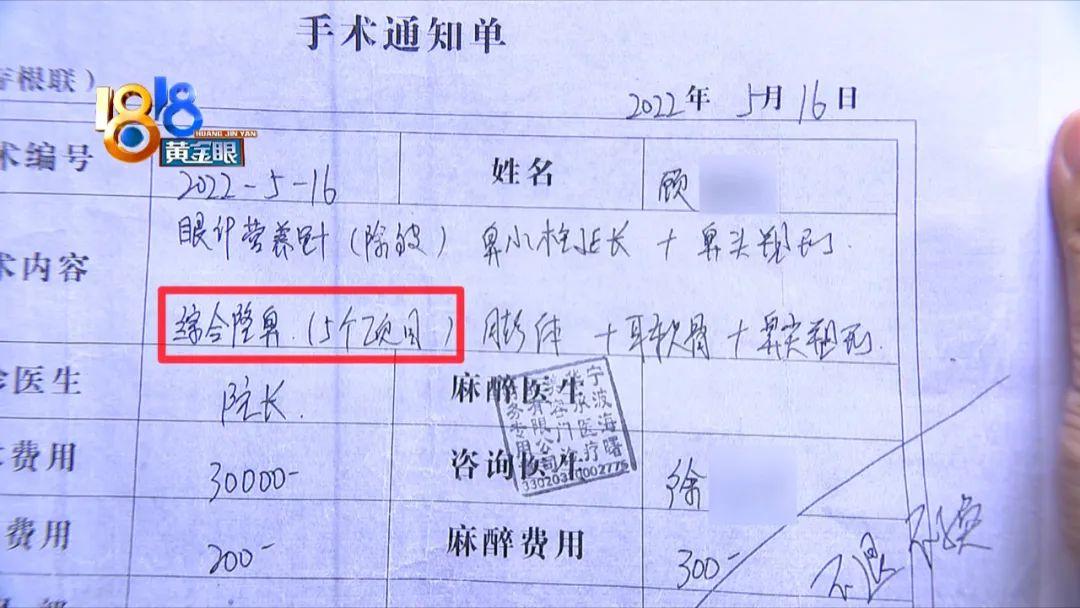 手术通知单
存根联）
1818
HUANG JIN YAN
黄金眼
2022年 5月16日
术编号 2022-5-16 姓名 顾
术内容 眼针营养针（除皱） 鼻小柱延长 + 鼻头塑形
综合隆鼻（5个项目） 膨体 + 耳软骨 + 鼻尖塑形
诊医生 院长 麻醉医生
费用 30000- 咨询医生 徐
费用 200- 麻醉费用 300-
不退 不换